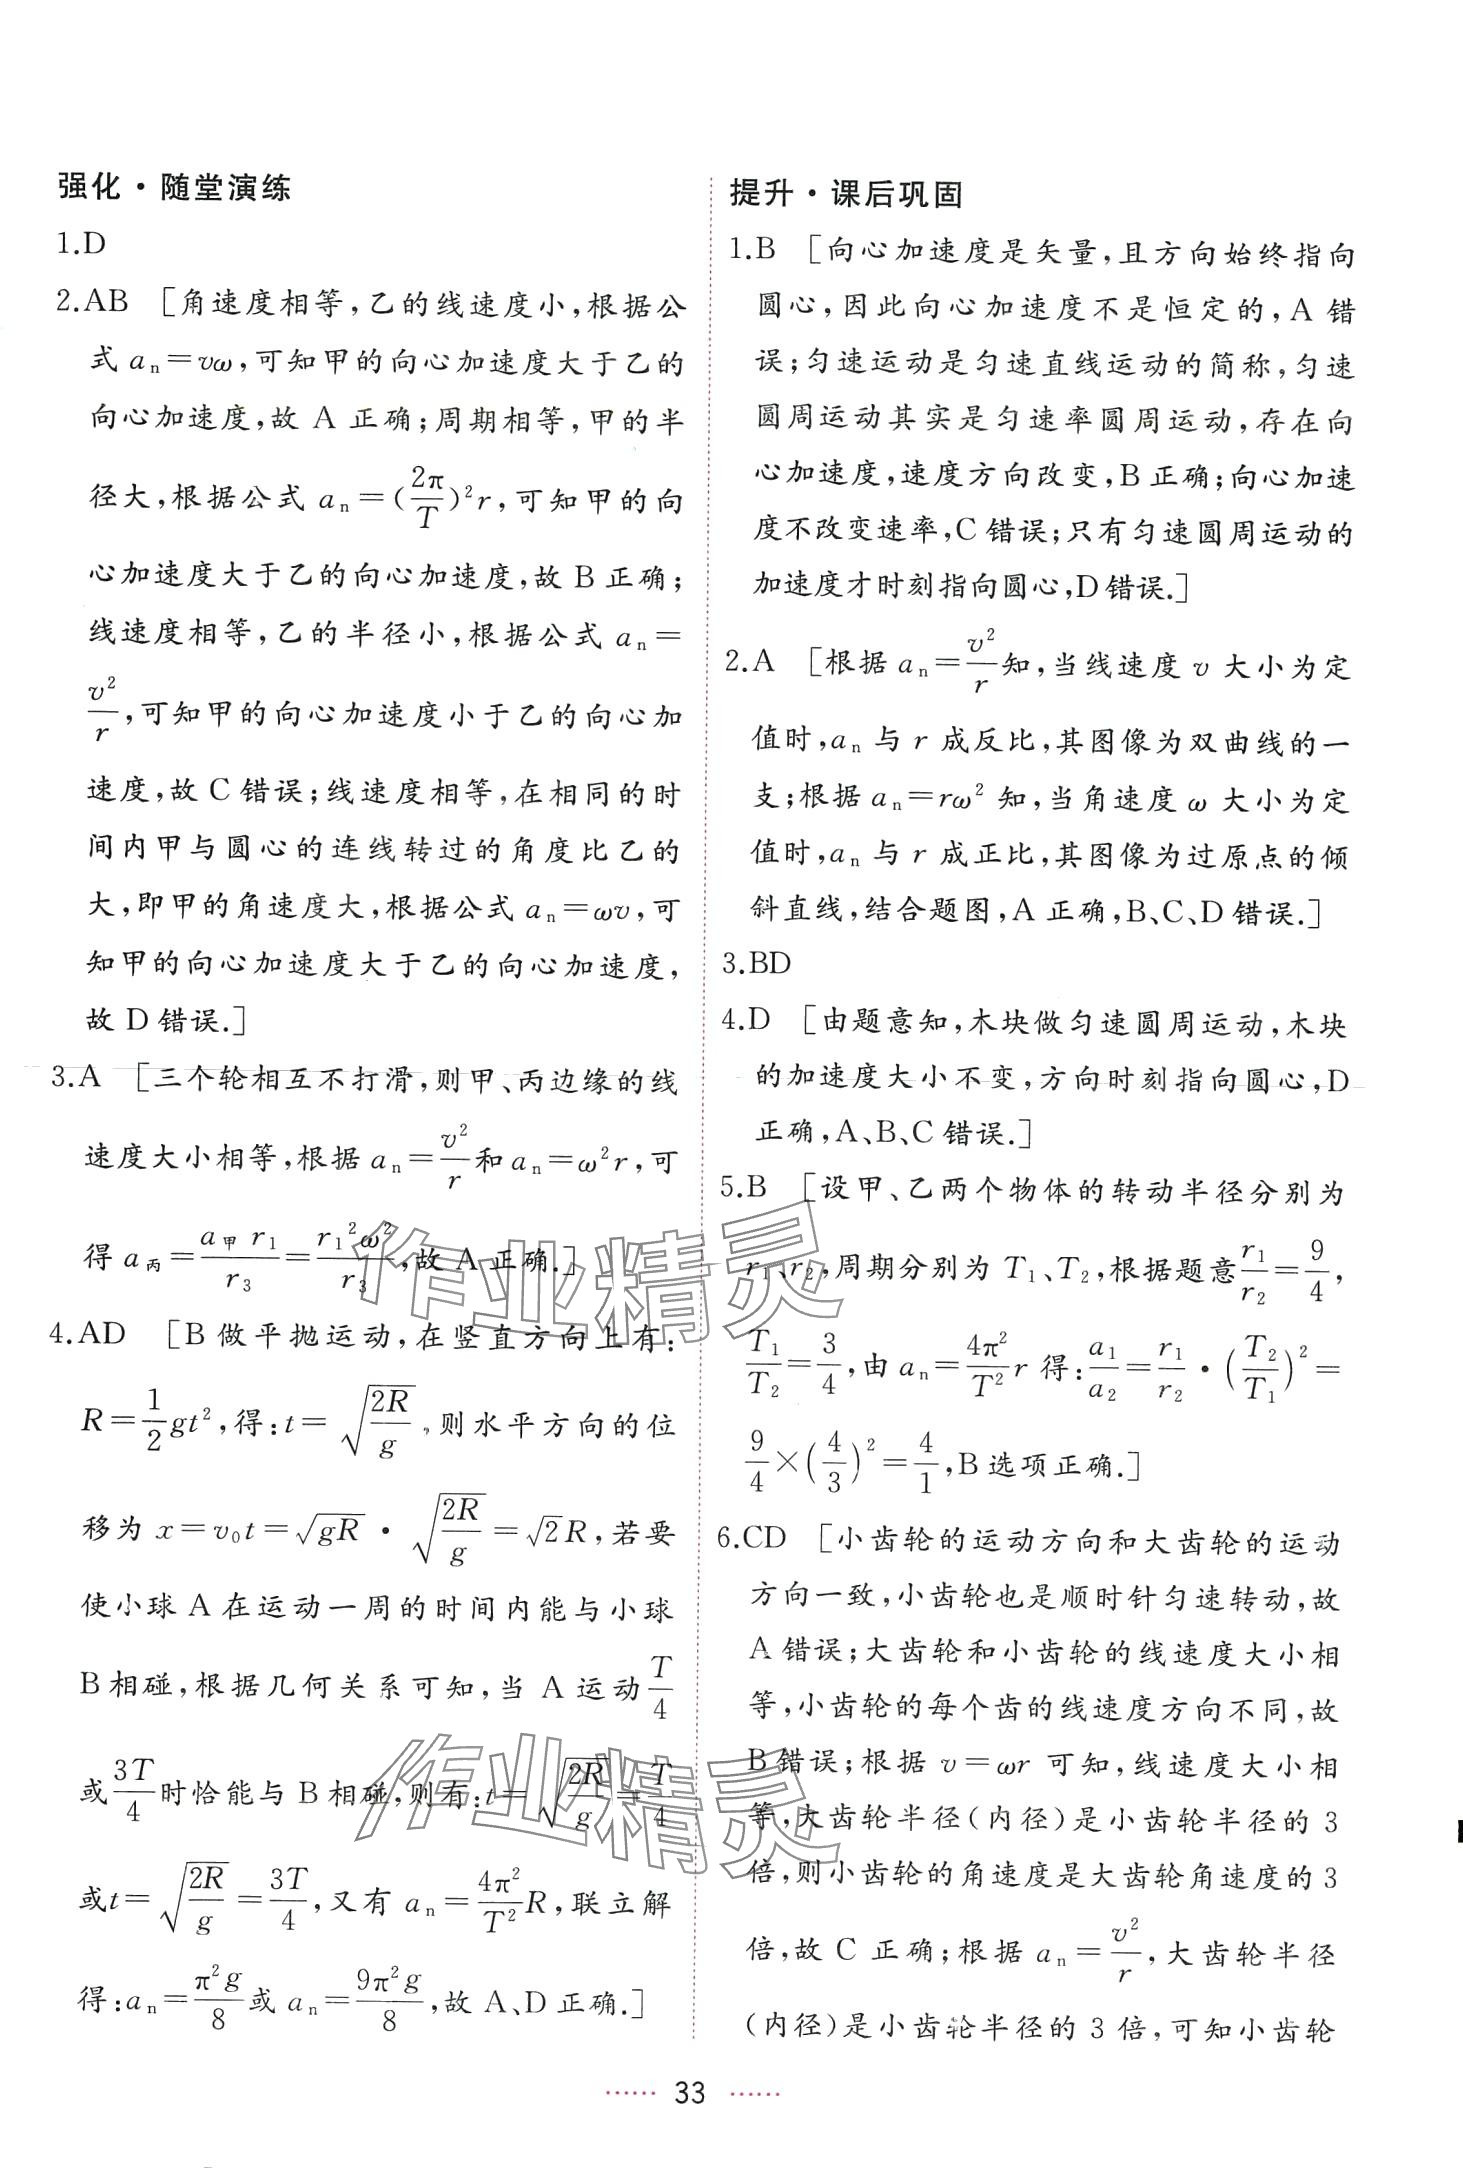 强化·随堂演练
1.D
2.AB [角速度相等,乙的线速度小,根据公
式 aₙ=vω,可知甲的向心加速度大于乙的
向心加速度,故 A 正确;周期相等,甲的半
径大,根据公式 aₙ=(2π/T)²r,可知甲的向
心加速度大于乙的向心加速度,故 B 正确;
线速度相等,乙的半径小,根据公式 aₙ=
v²/r,可知甲的向心加速度小于乙的向心加
速度,故 C 错误;线速度相等,在相同的时
间内甲与圆心的连线转过的角度比乙的
大,即甲的角速度大,根据公式 aₙ=ωv,可
知甲的向心加速度大于乙的向心加速度,
故 D 错误.]
3.A [三个轮相互不打滑,则甲、丙边缘的线
速度大小相等,根据 aₙ=v²/r和 aₙ=ω²r,可
得 a丙=a甲r₁/r₃=r₁²ω²/r₃,故 A 正确.]
4.AD [B 做平抛运动,在竖直方向上有:
R=1/2gt²,得:t=√(2R/g),则水平方向的位
移为 x=v₀t=√(gR)·√(2R/g)=√2R,若要
使小球 A 在运动一周的时间内能与小球
B 相碰,根据几何关系可知,当 A 运动T/4
或3T/4时恰能与 B 相碰,则有:t=√(2R/g)=T/4
或t=√(2R/g)=3T/4,又有 aₙ=4π²/T²R,联立解
得:aₙ=π²g/8或 aₙ=9π²g/8,故 A、D 正确.]
提升·课后巩固
1.B [向心加速度是矢量,且方向始终指向
圆心,因此向心加速度不是恒定的,A 错
误;匀速运动是匀速直线运动的简称,匀速
圆周运动其实是匀速率圆周运动,存在向
心加速度,速度方向改变,B 正确;向心加速
度不改变速率,C 错误;只有匀速圆周运动的
加速度才时刻指向圆心,D 错误.]
2.A [根据 aₙ=v²/r知,当线速度 v 大小为定
值时,aₙ 与 r 成反比,其图像为双曲线的一
支;根据 aₙ=rω² 知,当角速度 ω 大小为定
值时,aₙ 与 r 成正比,其图像为过原点的倾
斜直线,结合题图,A 正确,B、C、D 错误.]
3.BD
4.D [由题意知,木块做匀速圆周运动,木块
的加速度大小不变,方向时刻指向圆心,D
正确,A、B、C 错误.]
5.B [设甲、乙两个物体的转动半径分别为
r₁、r₂,周期分别为 T₁、T₂,根据题意r₁/r₂=9/4,
T₁/T₂=3/4,由 aₙ=4π²/T²r 得:a₁/a₂=r₁/r₂·(T₂/T₁)²=
9/4×(4/3)²=4/1,B 选项正确.]
6.CD [小齿轮的运动方向和大齿轮的运动
方向一致,小齿轮也是顺时针匀速转动,故
A 错误;大齿轮和小齿轮的线速度大小相
等,小齿轮的每个齿的线速度方向不同,故
B 错误;根据 v=ωr 可知,线速度大小相
等,大齿轮半径(内径)是小齿轮半径的 3
倍,则小齿轮的角速度是大齿轮角速度的 3
倍,故 C 正确;根据 aₙ=v²/r,大齿轮半径
(内径)是小齿轮半径的 3 倍,可知小齿轮
作业精灵
作业精灵
······ 33 ······